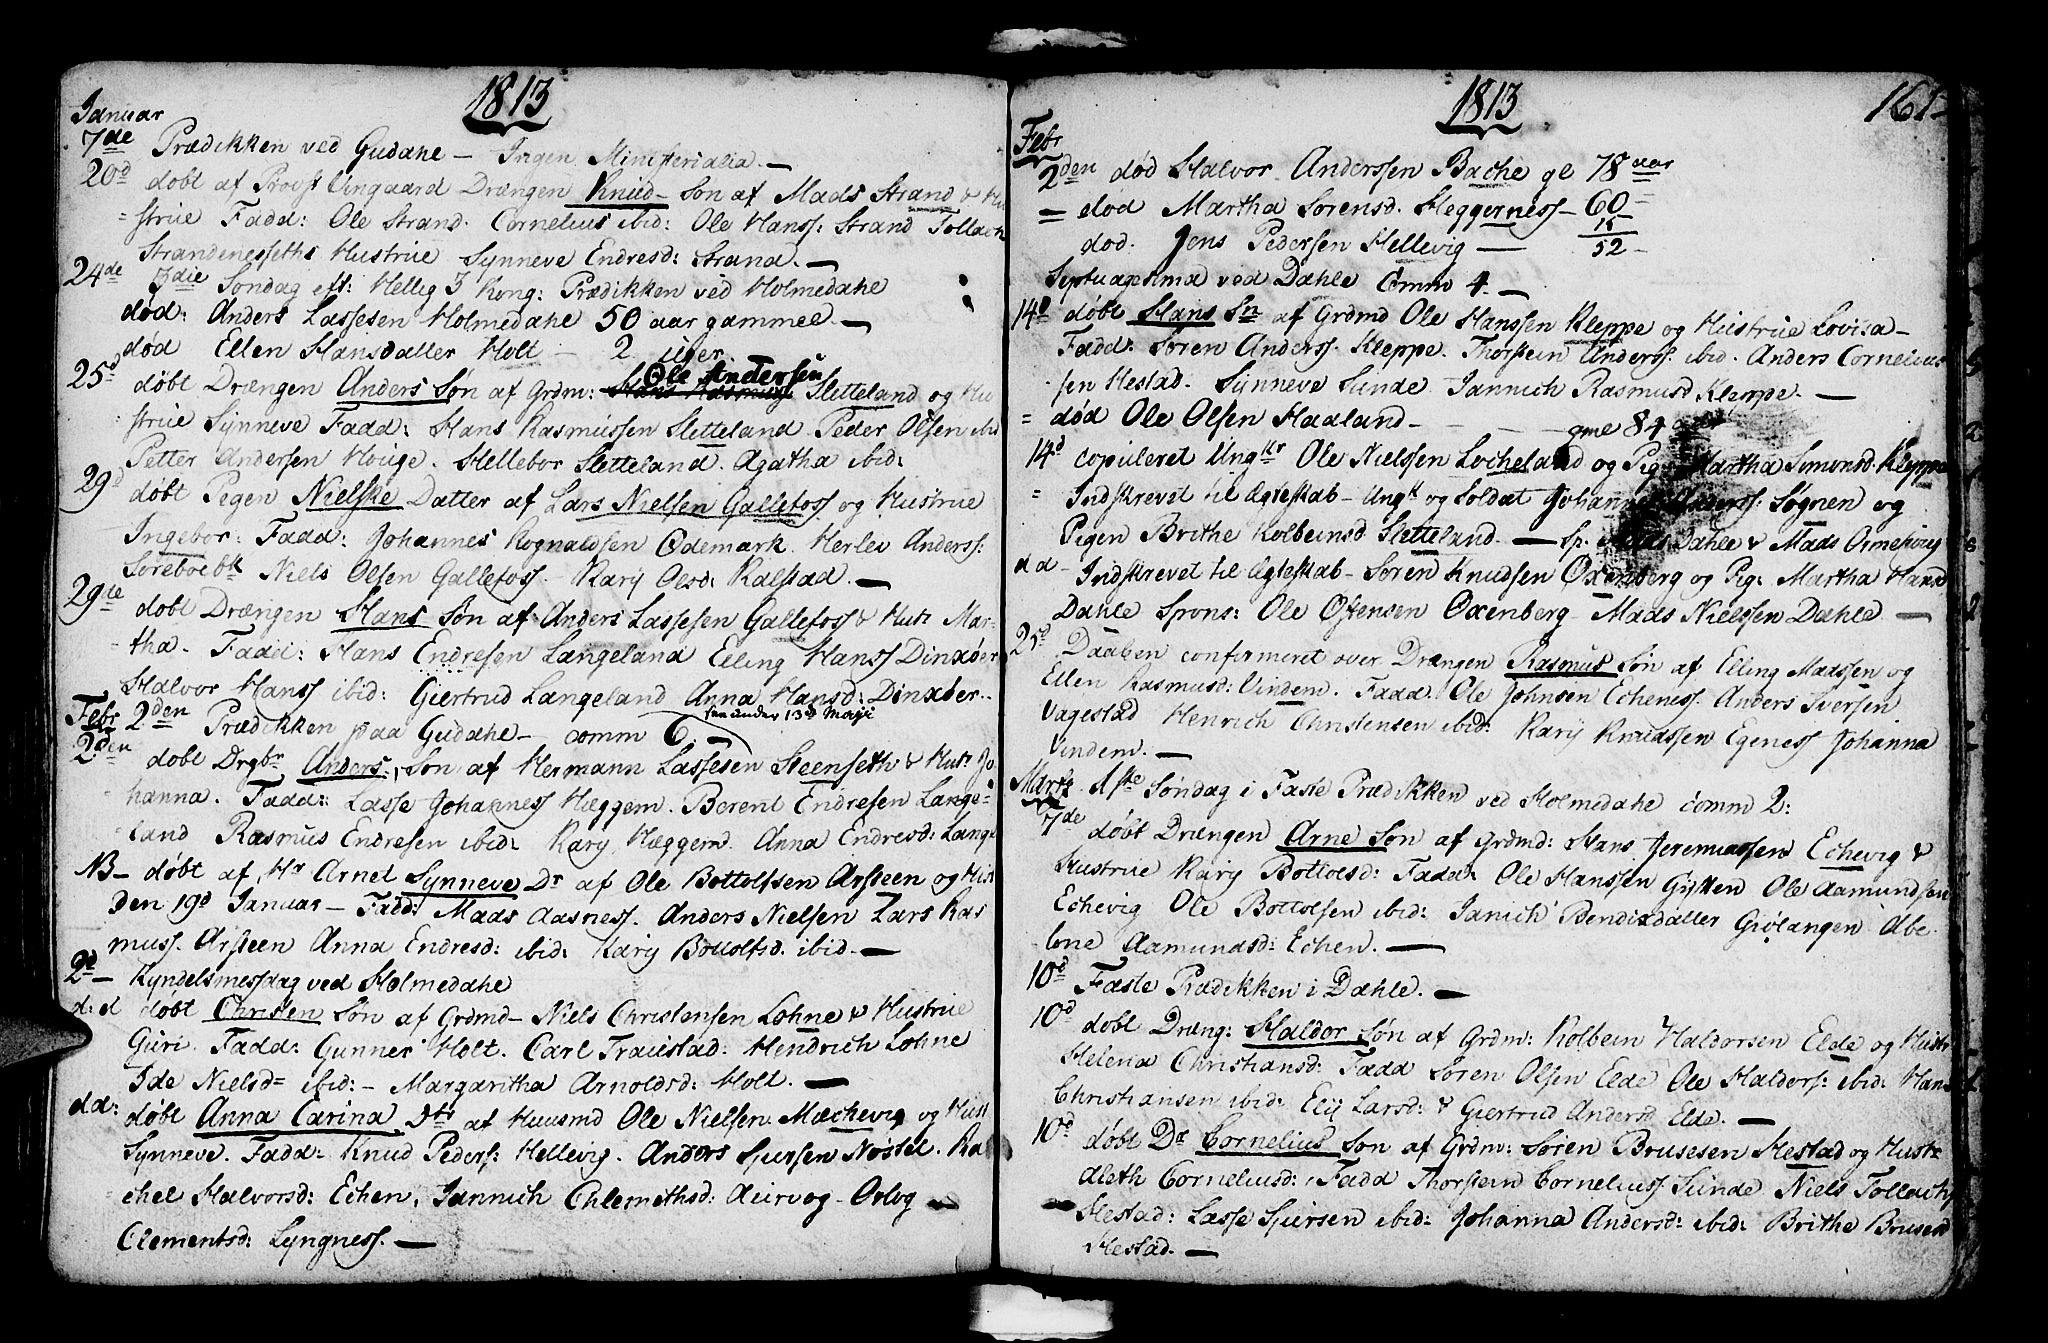 1813
Januar
7de Prædikken ved Gudahe – Ingen Ministerialia. –
20d dobt af Provst Vingaard Drængen Knud – Søn af Mads Strand & Hu
= strue Fadd: Ole Strand. Cornelius ibid: Ole Hanss: Strand Tollach
Strandenessets Hustrue Synneve Endresd: Strand. –
24de 3die Sondag eft: Hellig 3 Kong: Prædikken ved Holmedahe
død: Anders Lassesen Holmedahe 50 aar gammel. –
død Ellen Hansdatter Holt – 2 uger.
Ole Andersen
25d døbt Drængen Anders Søn af Grdm: Hans Rasmuss Sletteland og Hu
strue Synneve Fadd: Hans Rasmussen Sletteland Peder Olsen ibid
Petter Andersen Houge. Hellebor Sletteland. Agatha ibid:
29d døbt Pigen Nielske Datter af Lars Nielsen Gallefoss og Hustrue
Ingebor: Fadd: Johannes Rognaldsen Ødemark. Herlev Anderss:
Sørebøe Niels Olsen Gallefoss. Kary Olsd: Kalstad. –
29de dobt Drængen Hans Søn af Anders Lassesen Gallefoss & Hust: Mar-
tha. Fadd: Hans Endresen Langeland Elling Hanss Dinxøer
Halvor Hanss ibid: Giertrud Langeland Anna Hansd: Dinxøer..
Febr 2den Prædikken paa Gudahe – comm 6. – see under 13d Maji
2den dobt Drgbr Anders, Søn af Hermann Lassesen Steenseth & Hust: Jo-
hanna. Fadd: Lasse Johanness Hæggem. Berent Endresen Lange=
land Rasmus Endresen ibid: Kary Hæggem. Anna Endresd: Langel
NB – døbt af Hr Arnet Synneve Dr af Ole Bottolfsen Arsteen og Hust
den 19d Januar – Fadd: Mads Aasness. Anders Nielsen Lars Ras
muss. Arsteen Anna Endresd: ibid: Kary Bottolfsd. ibid. –
2d – Kyndelsmessdag ved Holmedahe
d:d døbt Christen Søn af Grdmd – Niels Christensen Lohne & Hustrue
Guri. Fadd: Gunner Holt. Carl Traustad: Hendrich Lohne
Ide Nielsd= ibid: – Margaritha Arnoldsd: Holt. –
dd: døbt Anna Carina Dtr af Huusmd Ole Nielsen Mæchevig og Hust
Synneve. Fadd: Knud Peders: Hellevig. Anders Siursen Nøstel. Ra
chel Halvorsd: Echen, Jannich Chlemethsd: Aurvog – Oolog
Clementsd: Lyngness. –
1813
161
Febr
2den død Halvor Anderssen Bache gl 78 aar
= død Martha Sørensd. Heggerness – 60 –
15
død. Jens Pedersen Hellevig – 52 –
Septuagesima ved Dahle Comm 4. –
14d døbt Hans Sn af Grdmd Ole Hanssen Kleppe og Hustrue Lovisa –
Fadd: Søren Anderss. Kleppe. Thorstein Anderss. ibid. Anders Cornelius
sen Hestad. Synneve Sunde Jannich Rasmusd Kleppe. –
= død Ole Olsen Haaland – gml 84 aar
14d copuleret Ungkr Ole Nielssen Locheland og Pig: Martha Simonsd: Kleppe
= Indskrevet til Ægteskab – Ungk og Soldat Johannes Anderss: Søgnen og
Pigen Brithe Kolbeinsd Sletteland. – Sp. Niels Dahle & Mads Ormehoug
dd – Indskrevet til Ægteskab – Søren Knudsen Oxenberg og Pig: Martha Hansd
Dahle Spons: Ole Ostensen Oxenberg – Mads Nielssen Dahle –
25d Daaben confirmeret over Drængen Rasmus Søn af Elling Madssen og
Ellen Rasmusd: Vindem. Fadd: Ole Johnsen Echeness. Anders Iversen
Vagestad Henrich Christensen ibid: Kary Knudssen Egeness Johanna
Vindem. –
Marts 1ste Søndag i Faste Prædikken ved Holmedahe comm 2:
7de døbt Drængen Arne Søn af Grdmd: Hans Jeremiassen Echevig &
Hustrue Kary Bottolsd: Fadd: Ole Hanssen Gytten Ole Aamundsen
Echevig Ole Bottolsen ibid: Janich Bendixdatter Giølangen Abe-
lone Aamundsd: Echen. –
10d Faste Prædikken i Dahle. –
10d døbt Dræng: Haldor Søn af Grdm: Kolbein Haldorsen Elde og Hustr
Helena Christiansd: Fadd Søren Olsen Elde Ole Haldors: ibid: Hans
Christiansen ibid: Elij Larsd: & Giertrud Andersd Elde. –
10d døbt Dr Cornelius Søn af Grdm: Søren Brusesen Hestad og Hust=
Aleth Corneliusd: Fadd Thorstein Corneliuss Sunde Niels Tollachs
Hestad: Lasse Siursen ibid: Johanna Andersd: ibid: Brithe Brusend
Hestad. –